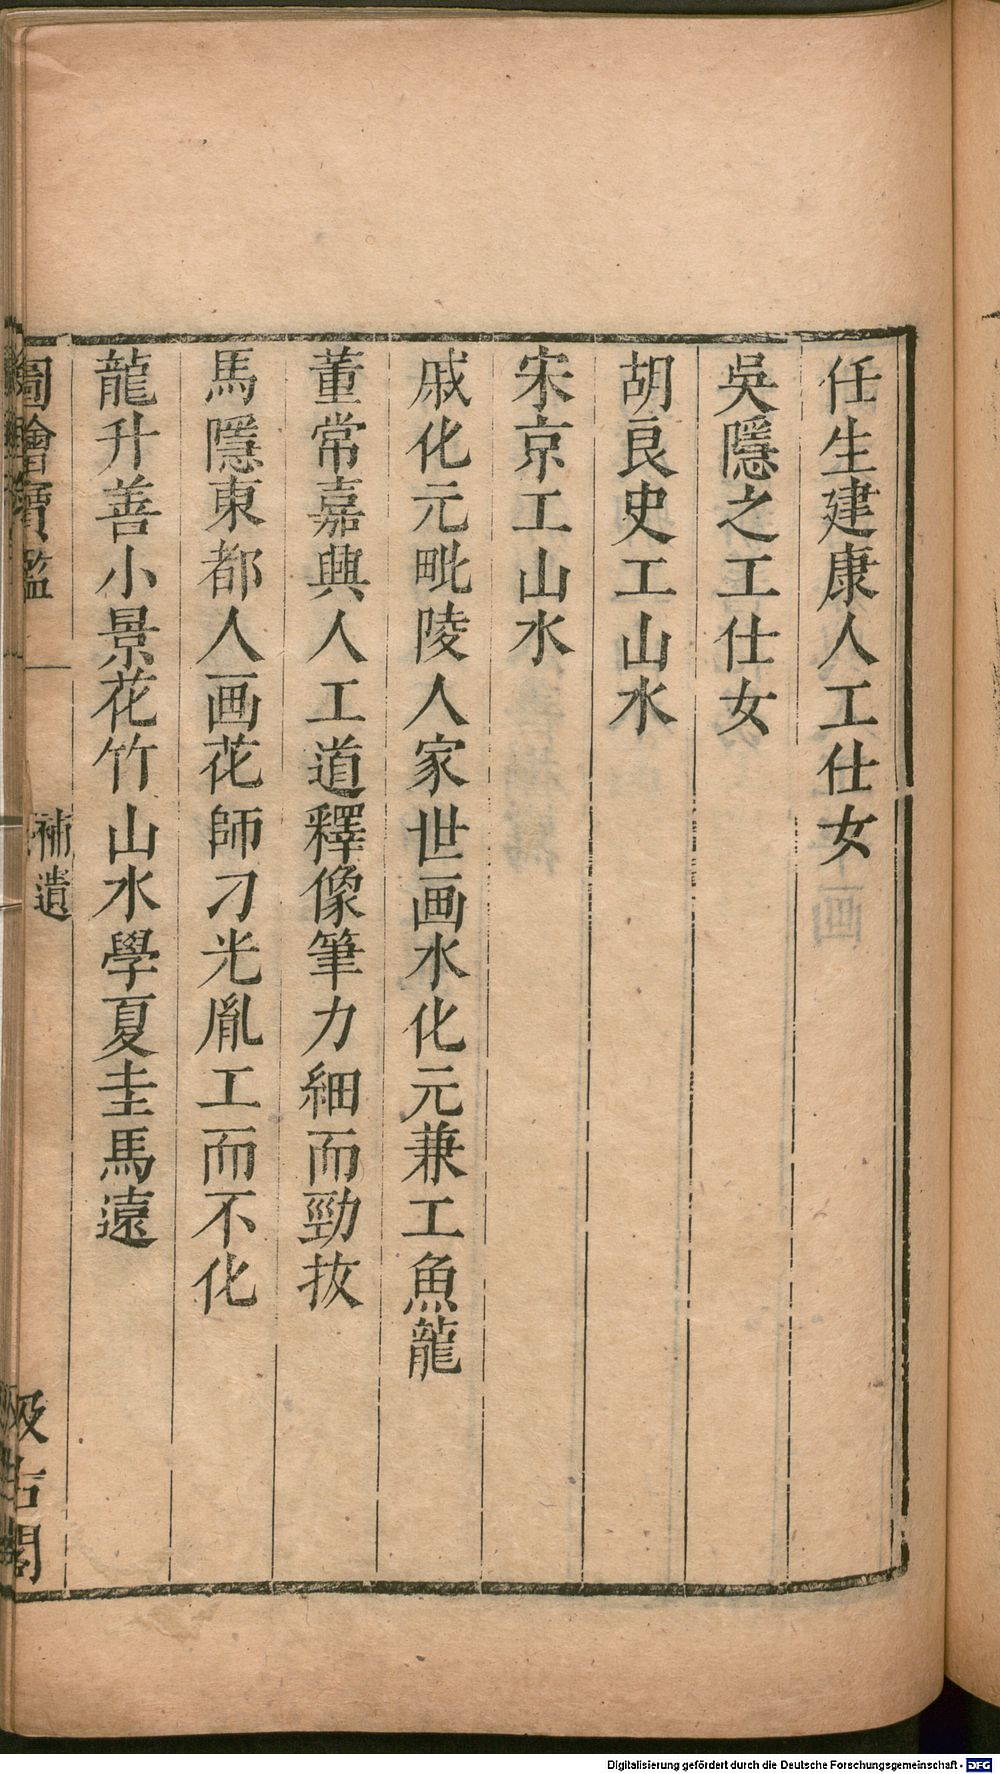 任生建康人工仕女
吳隱之工仕女
胡良史工山水
宋京工山水
戚化元毗陵人家世画水化元兼工魚龍
董常嘉興人工道釋像筆力細而勁拔
馬隱東都人画花師刁光胤工而不化
龍升善小景花竹山水學夏圭馬遠
圖繪寶鑑
補遺
汲古閣
Digitalisierung gefördert durch die Deutsche Forschungsgemeinschaft - DFG